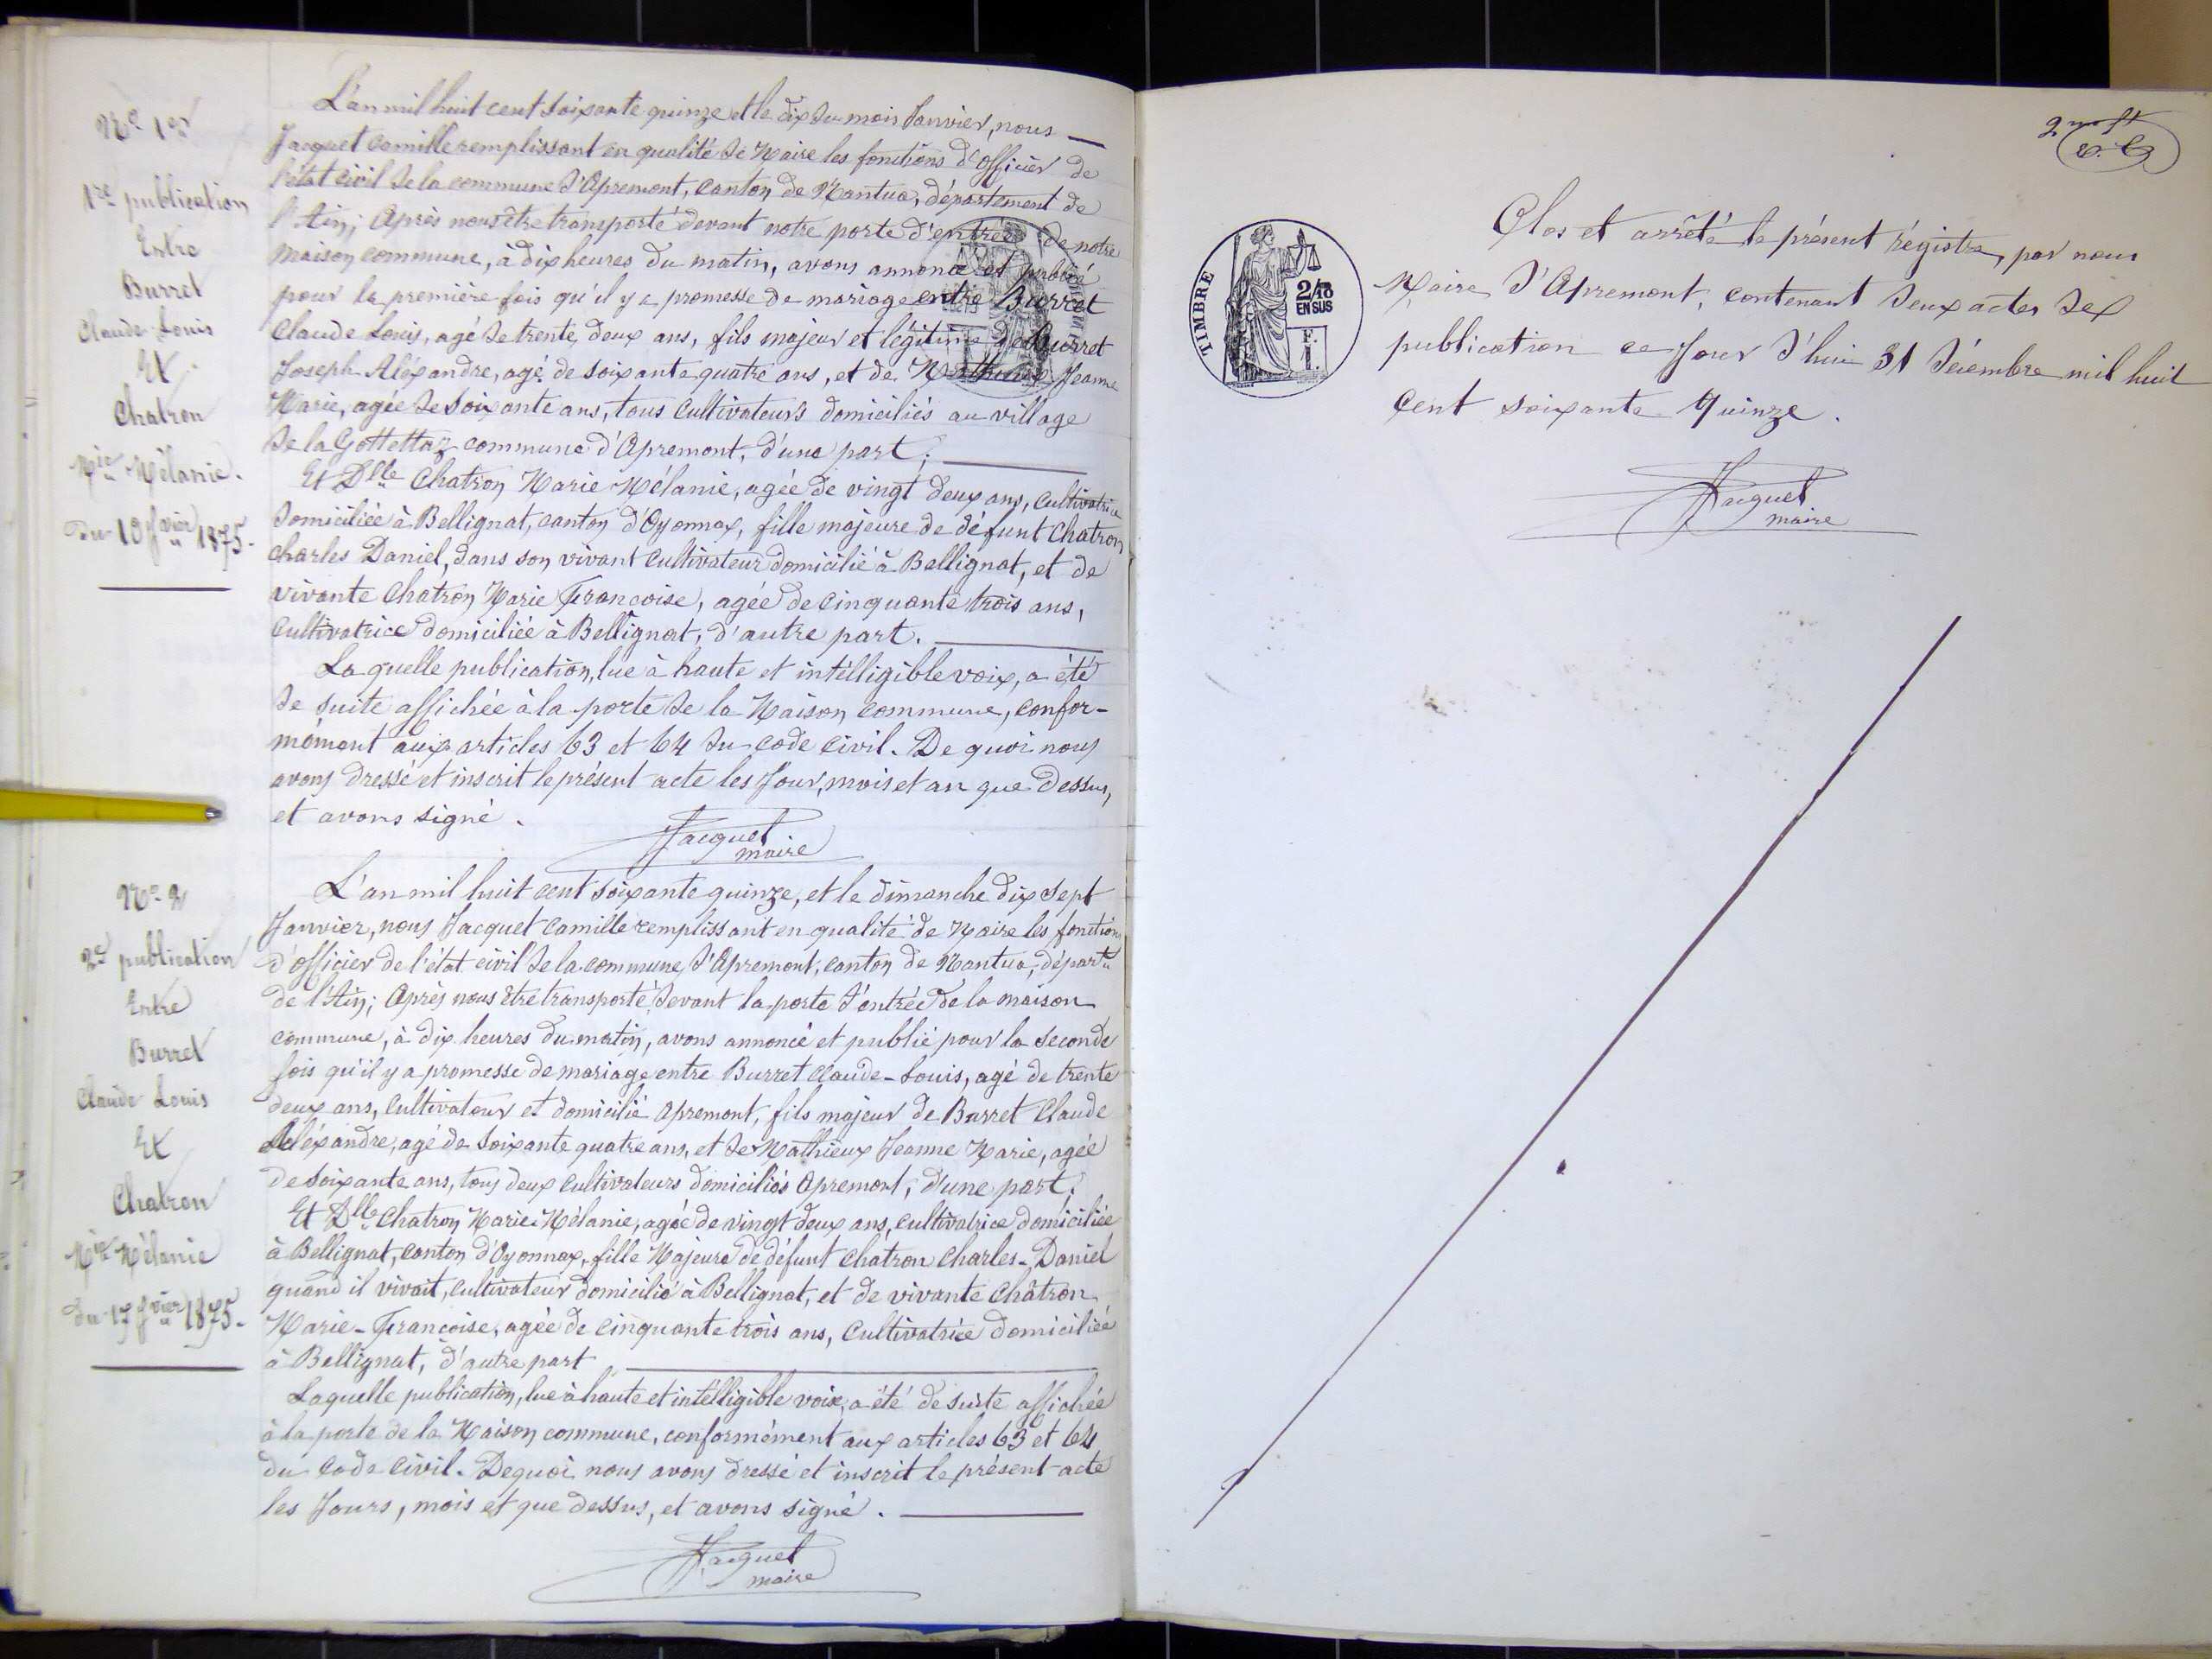 N° 1er
1re publication
Entre
Burret
Claude Louis
Et
Chatron
Mie Mélanie.
du 10 Jvier 1875.
L'an mil huit cent soixante quinze et le dix du mois Janvier, nous
Jacquet Camille remplissant en qualité de Maire les fonctions d'officier de
l'état civil de la commune d'Apremont, canton de Nantua, département de
l'Ain; Après nous être transporté devant notre porte d'entrée de notre
maison commune, à dix heures du matin, avons annoncé et publié
pour la première fois qu'il y a promesse de mariage entre Burret
Claude Louis, agé de trente deux ans, fils majeur et légitime de Burret
Joseph Aléxandre, agé de soixante quatre ans, et de Mathieux Jeanne
Marie, agée de soixante ans, tous cultivateurs domiciliés au village
de la Gottettaz commune d'Apremont, d'une part;
Et Dlle Chatron Marie Mélanie, agée de vingt deux ans, cultivatrice
domiciliée à Bellignat, canton d'Oyonnax, fille majeure de défunt Chatron
Charles Daniel, dans son vivant cultivateur domicilié à Bellignat, et de
vivante Chatron Marie Françoise, agée de cinquante trois ans,
cultivatrice domiciliée à Bellignat, d'autre part.
La quelle publication, lue à haute et intélligible voix, a été
de suite affichée à la porte de la Maison commune, confor-
mément aux articles 63 et 64 du code civil. De quoi nous
avons dressé et inscrit le présent acte les Jour, mois et an que dessus,
et avons signé.
Jacquet
maire
N° 2
2e publication
Entre
Burret
Claude Louis
Et
Chatron
Mie Mélanie
du 17 Jvier 1875.
L'an mil huit cent soixante quinze, et le dimanche dix sept
Janvier, nous Jacquet Camille remplissant en qualité de Maire les fonctions
d'officier de l'état civil de la commune d'Apremont, canton de Nantua, départt
de l'Ain; Après nous être transporté devant la porte d'entrée de la maison
commune, à dix heures du matin, avons annoncé et publié pour la seconde
fois qu'il y a promesse de mariage entre Burret Claude-Louis, agé de trente
deux ans, cultivateur et domicilié Apremont, fils majeur de Burret Claude
Aléxandre, agé de soixante quatre ans, et de Mathieux Jeanne Marie, agée
de soixante ans, tous deux cultivateurs domiciliés Apremont, d'une part.
Et Dlle Chatron Marie-Mélanie, agée de vingt deux ans, cultivatrice domiciliée
à Bellignat, canton d'Oyonnax, fille Majeure de défunt Chatron Charles-Daniel
quand il vivait, cultivateur domicilié à Bellignat, et de vivante Châtron
Marie-Françoise, agée de cinquante trois ans, cultivatrice domiciliée
à Bellignat, d'autre part
Laquelle publication, lue à haute et intélligible voix, a été de suite affichée
à la porte de la Maison commune, conformément aux articles 63 et 64
du code civil. Dequoi nous avons dressé et inscrit le présent acte
les Jours, mois et que dessus, et avons signé.
Jacquet
maire
TIMBRE
2/10
EN SUS
F.
1.
Clos et arrêté le présent régistre, par nous
Maire d'Apremont, contenant deux actes de
publication ce Jour d'hui 31 Décembre mil huit
cent soixante quinze.
Jacquet
maire